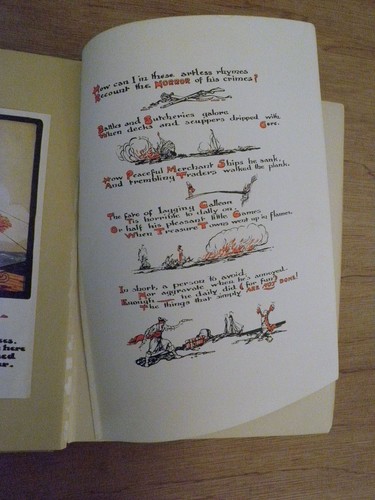 sses.
here
ed
ar.
How can I in these artless rhymes
Recount the HORROR of his crimes?
Battles and Butcheries galore
When decks and scuppers dripped with
Gore.
How Peaceful Merchant Ships he sank,
And trembling Traders walked the plank.
The fate of lagging Galleon
Tis horrible to dally on.
Or half his pleasant little Games
When Treasure Towns went up in flames.
In short, a person to avoid,
Nor aggravate when he's annoyed.
Enough he daily did (for fun)
The things that simply ARE NOT DONE!